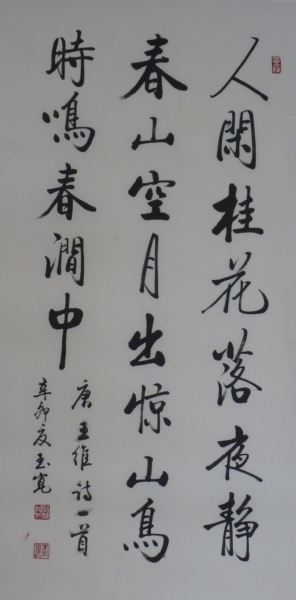 人閑桂花落夜靜
春山空月出惊山鳥
時鳴春澗中
唐王維詩一首
辛卯友玉寬